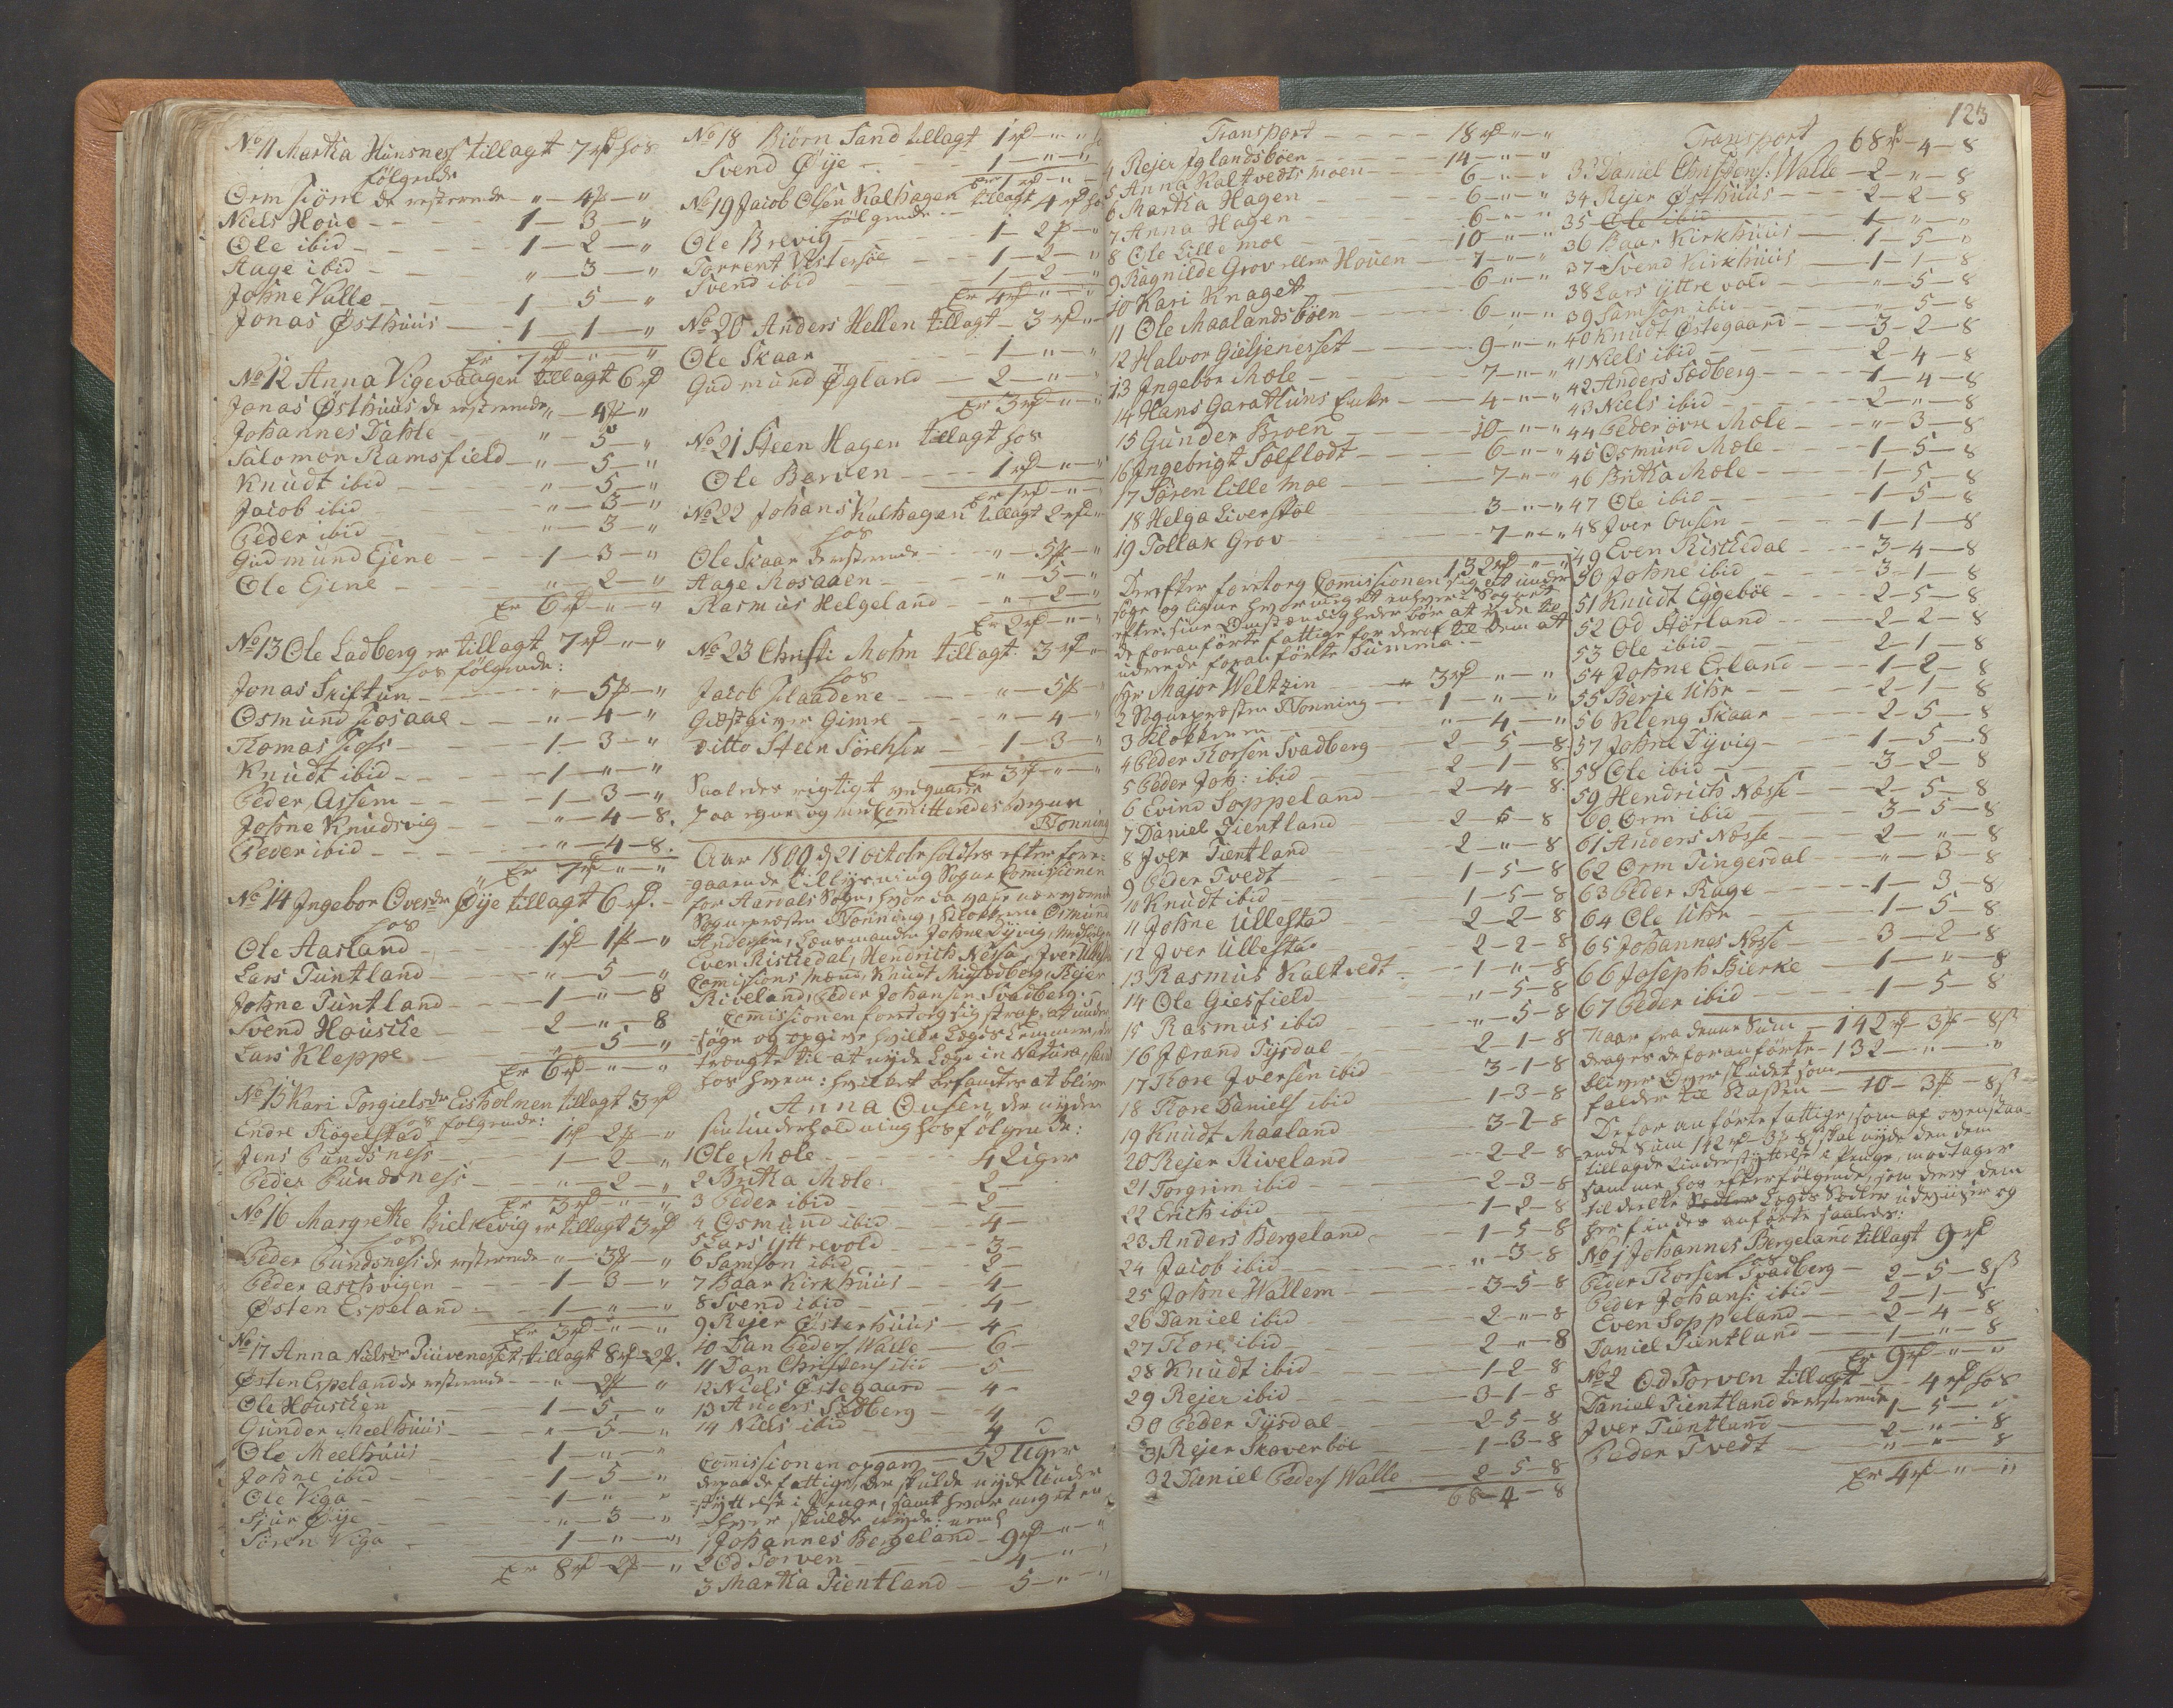 No 11 Martha Hunsness tillagt 7 rd hos
følgende
Orm Fiøn de resterende - " - 4 - "
Niels Houe - 1 - 3 - "
Ole ibid - 1 - 2 - "
Aage ibid - " - 3 - "
Johne Valle - 1 - 5 - "
Jonas Østhuus - 1 - 1 - "
Er 7 rd - " - "
No 12 Anna Vigevaagen tillagt 6 rd
Jonas Østhuus de resterende " - 4 - "
Johannes Dahle - " - 5 - "
Salomon Ramsfield - " - 5 - "
Knudt ibid - " - 5 - "
Jacob ibid - " - 3 - "
Peder ibid - " - 3 - "
Gudmund Ejene - 1 - 3 - "
Ole Ejene - " - 2 - "
Er 6 rd - " - "
No 13 Ole Ladberg er tillagt 7 rd - " - "
hos følgende:
Jonas Skiftun - " - 5 - "
Osmund Fosaae - " - 4 - "
Thomas Foss - 1 - 3 - "
Knudt ibid - 1 - " - "
Peder Assem - 1 - 3 - "
Johne Knudsvig - " - 4 - 8.
Peder ibid - " - 4 - 8.
Er 7 rd - " - "
No 14 Ingebor Oversdr Øije tillagt 6 rd. -
hos
Ole Aarland - 1 rd - 1 - "
Lars Tuntland - " - 5 - "
Johne Tuntland - 1 - " - 8
Svend Houske - 2 - " - 8
Lars Kleppe - " - 5 - "
Er 6 rd - " - "
No 15 Kari Torgielsdr Eisholmen tillagt 3 rd
hos følgende:
Endre Fløgelstad - 1 rd - 2 - "
Jens Pundsness - 1 - 2 - "
Peder Pundsness - " - 2 - "
Er 3 rd - " - "
No 16 Margrethe Hielkevig er tillagt 3 rd
hos
Peder Pundsness de resterende - " - 3 - "
Peder Asthvigen - 1 - 3 - "
Østen Espeland - 1 - " - "
Er 3 rd - " - "
No 17 Anna Nielsdr Tiuvenesset, tillagt 8 rd - 2.
Østen Espeland de resterende - " - 2 - "
Ole Housken - 1 - 5 - "
Gunder Meelhuus - " - 5 - "
Ole Meelhuus - 1 - " - "
Johne ibid - 1 - 5 - "
Ole Viga - 1 - " - "
Siur Øije - " - 3 - "
Sören Viga - 1 - " - "
Er 8 rd - 2 - "
No 18 Biörn Sand tillagt 1 rd - " - "
Svend Øije - 1 - " - "
Er 1 rd - " -
No 19 Jacob Olsen Kalhagen tillagt 4 rd hos
følgende -
Ole Brevig - 1 - 2 - "
Torrent Vestersöe - 1 - 2 - "
Svend ibid - 1 - 2 - "
Er 4 rd - " - "
No 20 Anders Hellen tillagt - 3 rd - "
Ole Skaar - 1 - " - "
Gudmund Øgland - 2 - " - "
Er 3 rd - " - "
No 21 Steen Hagen tillagt hos
Ole Berven - 1 rd - " - "
Er 1 rd - " - "
No 22 Johans Kalhagen tillagt 2 rd
hos
Ole Skaar de resterende - " - 5 - "
Aage Rosaaen - " - 5 - "
Rasmus Helgeland - " - 2 - "
Er 2 rd - " - "
No 23 Christi Mohn tillagt 3 rd - "
hos
Jacob Flaadene - " - 5 - "
Giæstgiver Gimre - " - 4 - "
Ditto Steen Sörensen - 1 - 3 - "
Er 3 rd - " - "
Saaledes rigtigt
Tonning
Aar 1800 d 21 Octobr holdtes efter fore-
gaaende Tillijsning Sogne Comissionen
for Aardals Sogn, hvor da vare nærværende
Sognepræsten Tonning, Klokkeren Osmund
Andersen, Lænsmanden Johne Dijvig,
Even Ristedal, Hendrich Nessa, Jver Ullestad
Comissions mænd, Knudt Sædberg, Rejer
Riveland, Peder Johansen Svadberg.
Comissionen foretog sig strax, at under-
söge og opgive hvilke Lægds Lemmer, der
trængte til at nijde Lægd in Natura, samt
hos hvem: hvilket befandtes at blive
Anna Ousen, der nijder
sin Underholdning hos fölgende:
1 Ole Mæle - 4 Uger
2 Britha Mæle - 2 -
3 Peder ibid - 2 -
4 Osmund ibid - 4 -
5 Lars ijttrevold - 3 -
6 Samson ibid - 2 -
7 Baar Kirkhuus - 4 -
8 Svend ibid - 4 -
9 Rejer Østerhuus - 4 -
10 Dan Peders Walle - 6 -
11 Dan Christens ibid - 5 -
12 Niels Østegaard - 4 -
13 Anders Sædberg - 4
14 Niels ibid - 4
52 Uger
Comissionen opgav
de fattige, der skulde nijde Under-
stöttelse i Penge, samt hvor meget en-
hver skulde nijde: neml
1 Johannes Bergeland - 9 rd - " - "
2 Od Torven - 4 - " - "
3 Martha Tientland - 5 - " - "
Transport - 18 rd - " - "
4 Rejer Iglandsböen - 14 - " - "
5 Anna Kaltvedts moen - 6 - " - "
6 Martha Hagen - 6 - " - "
7 Anna Hagen - 6 - " - "
8 Ole Lille moe - 10 - " - "
9 Ragnilde Grov eller Houen - 7 - " - "
10 Kari Knaget - 6 - " - "
11 Ole Maalandsböen - 6 - " - "
12 Halvor Gieljenesset - 9 - " - "
13 Ingebor Mæle - 7 - " - "
14 Hans Garathuns Enke - 4 - " - "
15 Gunder Broen - 10 - " - "
16 Ingebrigt Sælflodt - 6 - " - "
17 Sören Lille moe - 7 - " - "
18 Helga Liverstöl - 3 - " - "
19 Tollak Grov - 7 - " - "
132 rd - " - "
Derefter foretoeg Comissionen sig at under-
söge og ligne hvor meget enhver i Sognet
efter sine Omstændigheder bör at ijde til
de foranförte fattige for deraf til dem at
udrede foranförte Summa. -
1 Hr Major Weltzin - 3 rd - " - "
2 Sognepræsten Tonning - 1 - " - "
3 Klokkeren - " - 4 - "
4 Peder Thorsen Svadberg - 2 - 5 - 8.
5 Peder Joh: ibid - 2 - 1 - 8
6 Evind Soppeland - 2 - 4 - 8.
7 Daniel Tientland - 2 - 5 - 8
8 Jver Tientland - 2 - " - 8
9 Peder Tvedt - 1 - 5 - 8
10 Knudt ibid - 1 - 5 - 8
11 Johne Ullestad - 2 - 2 - 8
12 Jver Ullestad - 2 - 2 - 8
13 Rasmus Kaltvedt - 1 - " - 8
14 Ole Giesfield - " - 5 - 8
15 Rasmus ibid - " - 5 - 8
16 Jærand Tijsdal - 2 - 1 - 8
17 Thore Jversen ibid - 3 - 1 - 8
18 Thore Daniels ibid - 1 - 3 - 8
19 Knudt Maaland - 3 - 2 - 8
20 Rejer Riveland - 2 - 2 - 8
21 Torgrim ibid - 2 - 3 - 8
22 Erich ibid - 1 - 2 - 8
23 Anders Bergeland - 1 - 5 - 8
24 Jacob ibid - " - 3 - 8
25 Johne Wallem - 3 - 5 - 8
26 Daniel ibid - 2 - " - 8
27 Thore ibid - 2 - " - 8
28 Knudt ibid - 1 - 2 - 8
29 Rejer ibid - 3 - 1 - 8
30 Peder Tijsdal - 2 - 5 - 8
31 Rejer Skaverböe - 1 - 3 - 8
32 Daniel Peders Walle - 2 - 5 - 8
68 - 4 - 8
123
Transport 68 rd - 4 - 8
33 Daniel Christens: Walle - 2 - " - 8
34 Rejer Østhuus - 2 - 2 - 8
35 Ole ibid - 1 - " - "
36 Baar Kirkhuus - 1 - 5 - "
37 Svend Kirkhuus - 1 - 1 - 8
38 Lars ijttre vold - " - 5 - 8
39 Samson ibid - " - 5 - 8
40 Knudt Østegaard - 3 - 2 - 8
41 Niels ibid - 2 - 4 - 8
42 Anders Sædberg - 1 - 4 - 8
43 Niels ibid - 2 - " - 8
44 Peder övre Mæle - " - 3 - 8
45 Osmund Mæle - 1 - 5 - 8
46 Britha Mæle - 1 - 5 - 8
47 Ole ibid - 1 - 5 - 8
48 Jver Ousen - 1 - 1 - 8
49 Even Ristedal - 3 - 4 - 8
50 Johne ibid - 3 - 1 - 8
51 Knudt Eggeböe - 2 - 5 - 8
52 Od Hörland - 2 - 2 - 8
53 Ole ibid - 2 - 1 - 8
54 Johne Erland - 1 - 2 - 8
55 Berje Uhr - 2 - 1 - 8
56 Kleng Skaar - 2 - 5 - 8
57 Johne Dijvig - 1 - 5 - 8
58 Ole ibid - 3 - 2 - 8
59 Hendrich Næsse - 2 - 5 - 8
60 Orm ibid - 3 - 5 - 8
61 Anders Næsse - 2 - " - 8
62 Orm Tingesdal - " - 3 - 8
63 Peder Rage - 1 - 3 - 8
64 Ole Uhr - 1 - 5 - 8
65 Johannes Næsse - 3 - 2 - 8
66 Joseph Bierke - 1 - " - 8
67 Peder ibid - 1 - 5 - 8
Naar fra denne Sum - 142 rd - 3 - 8 ß
drages de foranförte - 132 - " - "
bliver Overskudet som
falder til Kassen - 10 - 3 - 8 ß
De foranförte fattige, som af ovenstaa-
ende Sum 142 rd - 3 - 8 skal nijde den dem
tillagde Understöttelse i Penge, modtager
samme hos efterfölgende, som deres dem
tildeelte Sedler Lægds Sedler udviser og
her findes anförte saaledes:
No 1 Johannes Bergeland tillagt 9 rd
hos
Peder Thorsen Svadberg - 2 - 5 - 8 ß
Peder Johans: ibid - 2 - 1 - 8
Even Soppeland - 2 - 4 - 8
Daniel Tientland - 1 - " - 8
Er 9 rd - " - "
No 2 Od Torven tillagt - 4 rd hos
Daniel Tientland de resterende 1 - 5 - "
Jver Tientland - 2 - " - 8
Peder Tvedt - " - " - 8
Er 4 rd - " - "